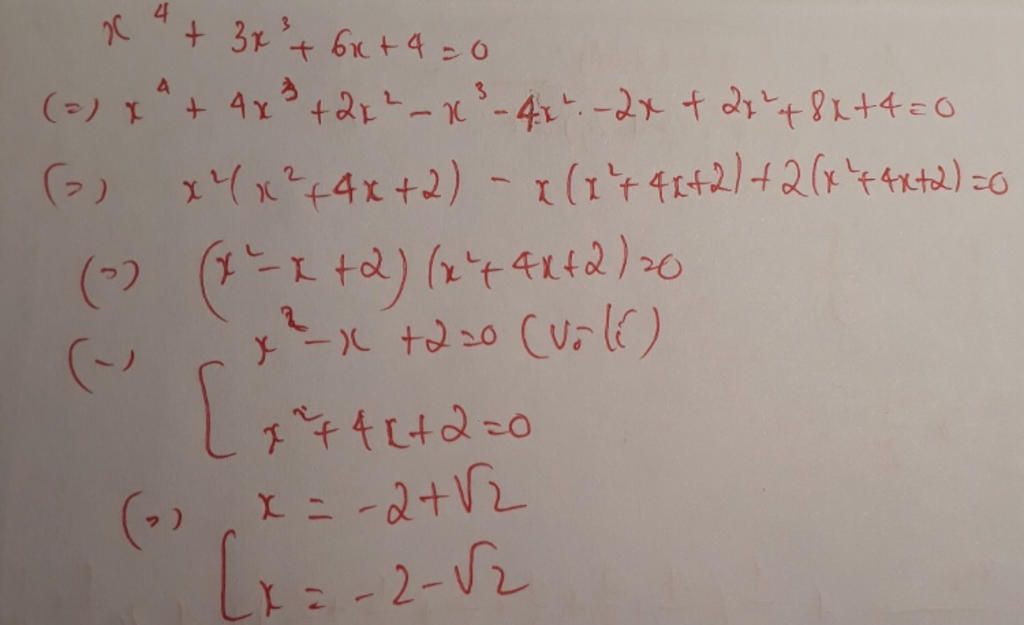 x⁴ + 3x³ + 6x + 4 = 0
(=) x⁴ + 4x³ + 2x² - x³ - 4x² - 2x + 2x² + 8x + 4 = 0
(=) x²(x² + 4x + 2) - x(x² + 4x + 2) + 2(x² + 4x + 2) = 0
(=) (x² - x + 2)(x² + 4x + 2) = 0
(-) [ x² - x + 2 = 0 (vô lí)
x² + 4x + 2 = 0
(=) [ x = -2 + √2
x = -2 - √2